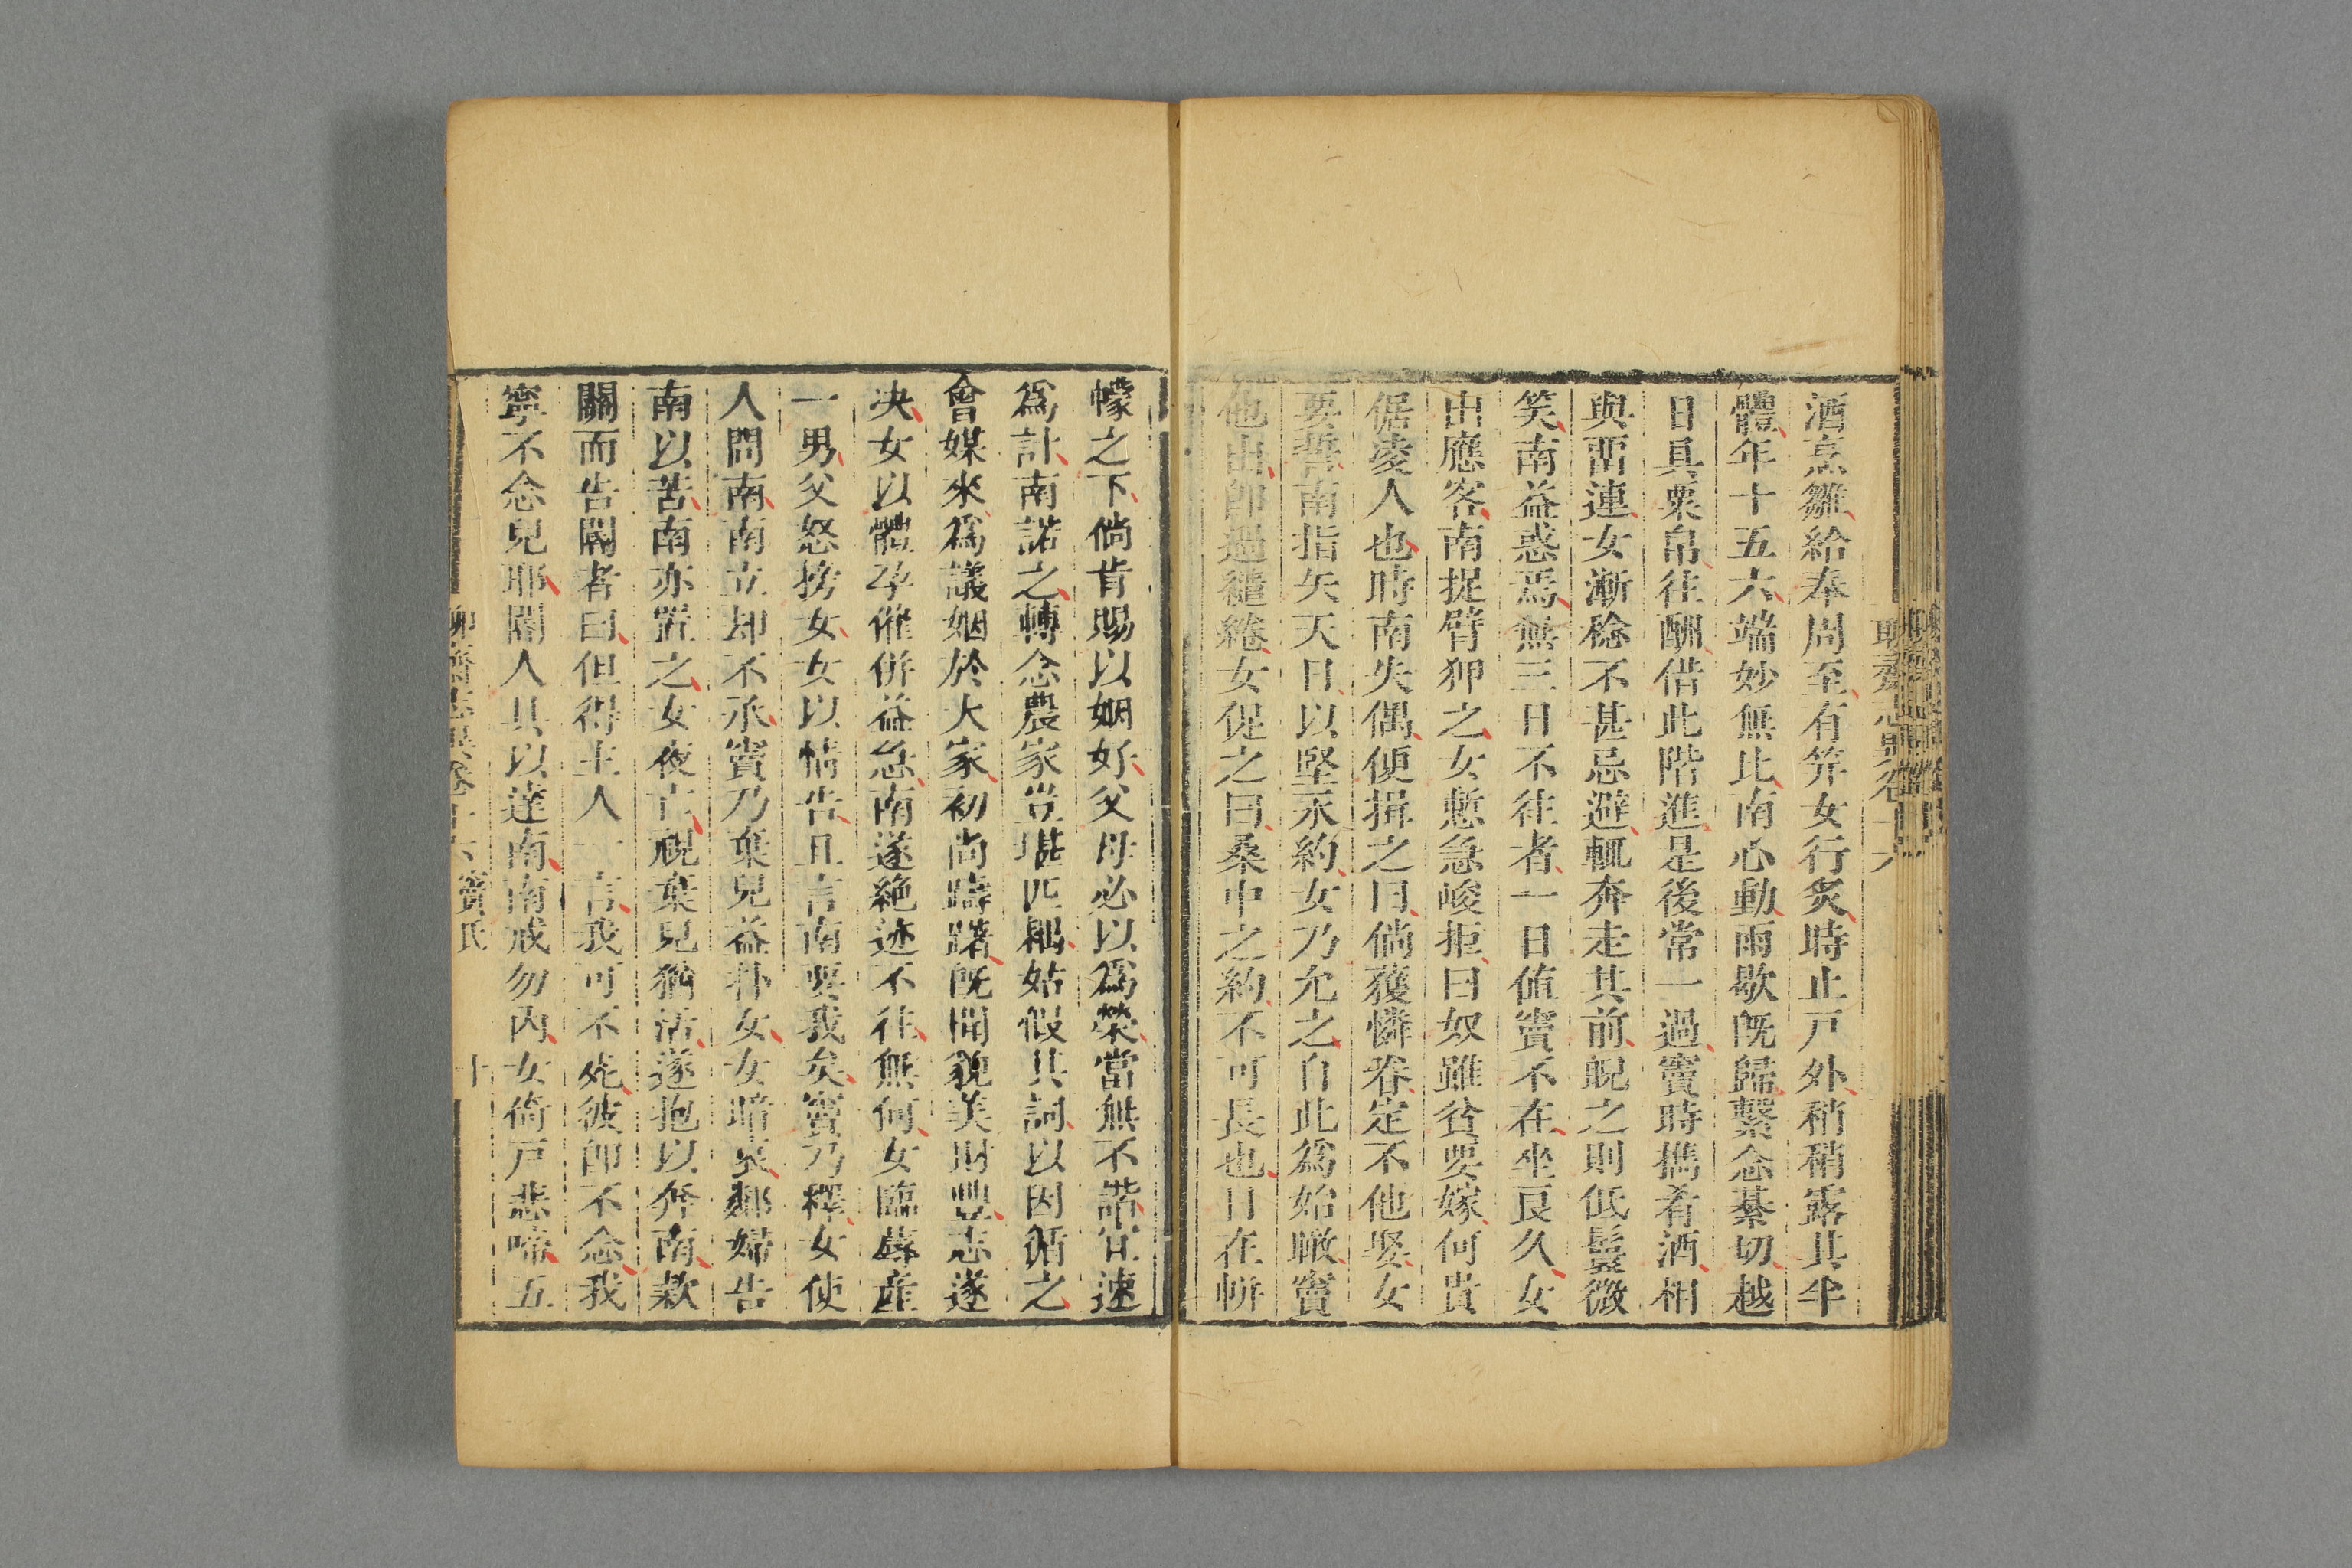 酒烹雛給奉周至有笄女行炙時止戸外稍稍露其半
體年十五六端妙無比南心動雨歇旣歸繫念綦切越
日具粟帛往酬借此階進是後常一過竇時攜肴酒相
與畱連女漸稔不甚忌避輒奔走其前睨之則低鬟微
笑南益惑焉無三日不往者一日値竇不在坐良久女
出應客南捉臂狎之女慙急峻拒曰奴雖貧要嫁何貴
倨凌人也時南失偶便揖之曰倘獲憐眷定不他娶女
要誓南指矢天日以堅永約女乃允之自此爲始瞰竇
他出卽過繾綣女促之曰桑中之約不可長也日在帡
幪之下倘肯賜以姻好父母必以爲榮當無不諧宜速
爲計南諾之轉念農家豈堪匹耦姑假其詞以因循之
會媒來爲議姻於大家初尚躊躇旣聞貌美財豐志遂
决女以體孕催併益急南遂絶迹不往無何女臨蓐産
一男父怒搒女女以情告且言南要我矣竇乃釋女使
人問南南立却不承竇乃棄兒益扑女女暗哀鄰婦告
南以苦南亦置之女夜亡視棄兒猶活遂抱以奔南款
關而告閽者曰但得主人一言我可不死彼卽不念我
寧不念兒耶閽人具以達南南戒勿內女倚戸悲啼五
聊齋志異卷十六 竇氏 十